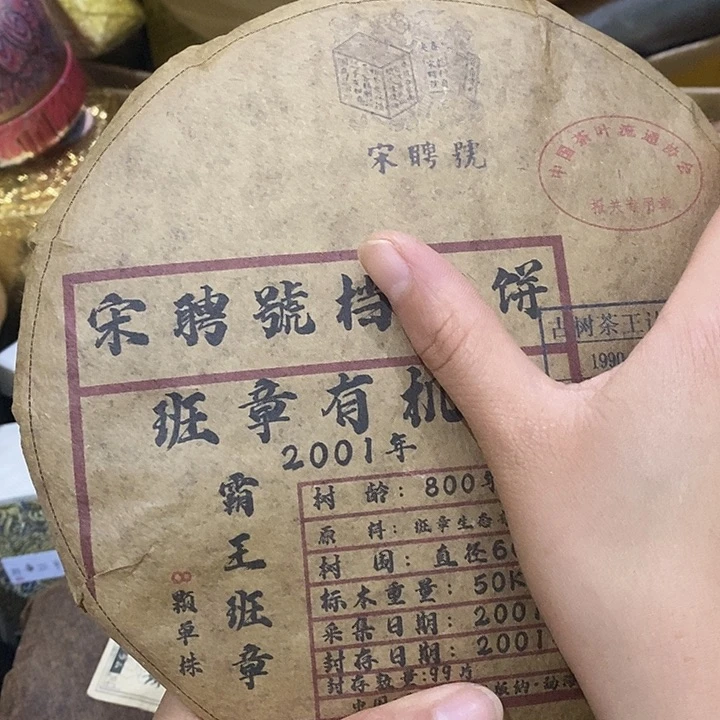 宋聘號
中国茶叶流通协会
报关专用章
宋聘號档 饼
古树茶王
1990
班章有机
2001年
霸王班章
8颗单株
树 龄：800年
原 料：班章生态
树 围：直径60
标本重量：50K
采集日期：2001
封存日期：2001
封存数量：99片
中国
版纳·勐海